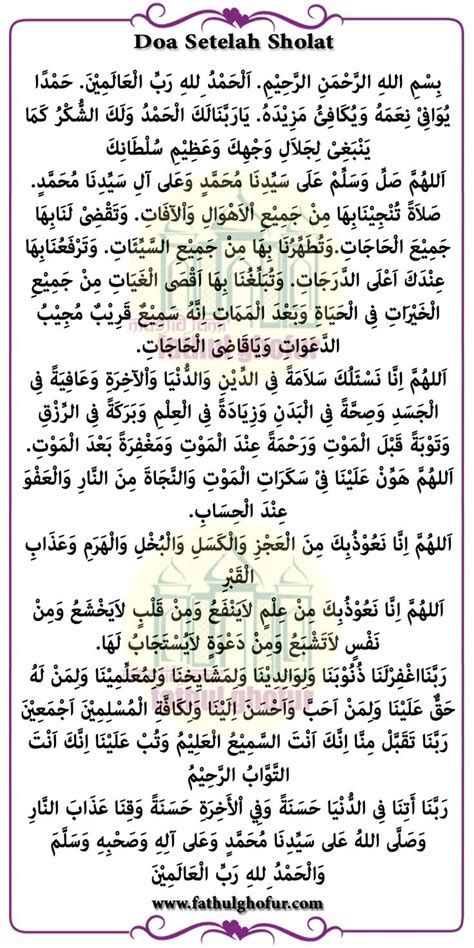 Doa Setelah Sholat
بِسْمِ اللهِ الرَّحْمَنِ الرَّحِيْمِ. اَلْحَمْدُ لِلهِ رَبِّ الْعَالَمِيْنَ. حَمْدًا
يُوَافِيْ نِعَمَهُ وَيُكَافِئُ مَزِيْدَهُ. يَارَبَّنَالَكَ الْحَمْدُ وَلَكَ الشُّكْرُ كَمَا
يَنْبَغِيْ لِجَلَالِ وَجْهِكَ وَعَظِيْمِ سُلْطَانِكَ
اَللهُمَّ صَلِّ وَسَلِّمْ عَلَى سَيِّدِنَا مُحَمَّدٍ وَعَلى آلِ سَيِّدِنَا مُحَمَّدٍ.
صَلَاةً تُنْجِيْنَابِهَا مِنْ جَمِيْعِ الْاَهْوَالِ وَاْلآفَاتِ. وَتَقْضِىْ لَنَابِهَا
جَمِيْعَ الْحَاجَاتِ.وَتُطَهِّرُنَا بِهَا مِنْ جَمِيْعِ السَّيِّئَاتِ. وَتَرْفَعُنَابِهَا
عِنْدَكَ اَعْلَى الدَّرَجَاتِ. وَتُبَلِّغُنَا بِهَا اَقْصَى الْغَيَاتِ مِنْ جَمِيْعِ
الْخَيْرَاتِ فِى الْحَيَاةِ وَبَعْدَ الْمَمَاتِ اِنَّهُ سَمِيْعٌ قَرِيْبٌ مُجِيْبُ
الدَّعَوَاتِ وَيَاقَاضِىَ الْحَاجَاتِ.
اَللهُمَّ اِنَّا نَسْئَلُكَ سَلَامَةً فِى الدِّيْنِ وَالدُّنْيَا وَاْلآخِرَةِ وَعَافِيَةً فِى
الْجَسَدِ وَصِحَّةً فِى الْبَدَنِ وَزِيَادَةً فِى الْعِلْمِ وَبَرَكَةً فِى الرِّزْقِ
وَتَوْبَةً قَبْلَ الْمَوْتِ وَرَحْمَةً عِنْدَ الْمَوْتِ وَمَغْفِرَةً بَعْدَ الْمَوْتِ.
اَللهُمَّ هَوِّنْ عَلَيْنَا فِيْ سَكَرَاتِ الْمَوْتِ وَالنَّجَاةَ مِنَ النَّارِ وَالْعَفْوَ
عِنْدَ الْحِسَابِ.
اَللهُمَّ اِنَّا نَعُوْذُبِكَ مِنَ الْعَجْزِ وَالْكَسَلِ وَالْبُخْلِ وَالْهَرَمِ وَعَذَابِ
الْقَبْرِ
اَللهُمَّ اِنَّا نَعُوْذُبِكَ مِنْ عِلْمٍ لَايَنْفَعُ وَمِنْ قَلْبٍ لَايَخْشَعُ وَمِنْ
نَفْسٍ لَاتَشْبَعُ وَمِنْ دَعْوَةٍ لَايُسْتَجَابُ لَهَا.
رَبَّنَااغْفِرْلَنَا ذُنُوْبَنَا وَلِوَالِدِيْنَا وَلِمَشَايِخِنَا وَلِمُعَلِّمِيْنَا وَلِمَنْ لَهُ
حَقٌّ عَلَيْنَا وَلِمَنْ اَحَبَّ وَاَحْسَنَ اِلَيْنَا وَلِكَافَّةِ الْمُسْلِمِيْنَ اَجْمَعِيْنَ
رَبَّنَا تَقَبَّلْ مِنَّا اِنَّكَ اَنْتَ السَّمِيْعُ الْعَلِيْمُ وَتُبْ عَلَيْنَا اِنَّكَ اَنْتَ
التَّوَّابُ الرَّحِيْمُ
رَبَّنَا آتِنَا فِي الدُّنْيَا حَسَنَةً وَفِي اْلآخِرَةِ حَسَنَةً وَقِنَا عَذَابَ النَّارِ
وَصَلَّى اللهُ عَلَى سَيِّدِنَا مُحَمَّدٍ وَعَلَى آلِهِ وَصَحْبِهِ وَسَلَّمَ
وَالْحَمْدُ لِلهِ رَبِّ الْعَالَمِيْنَ
www.fathulghofur.com